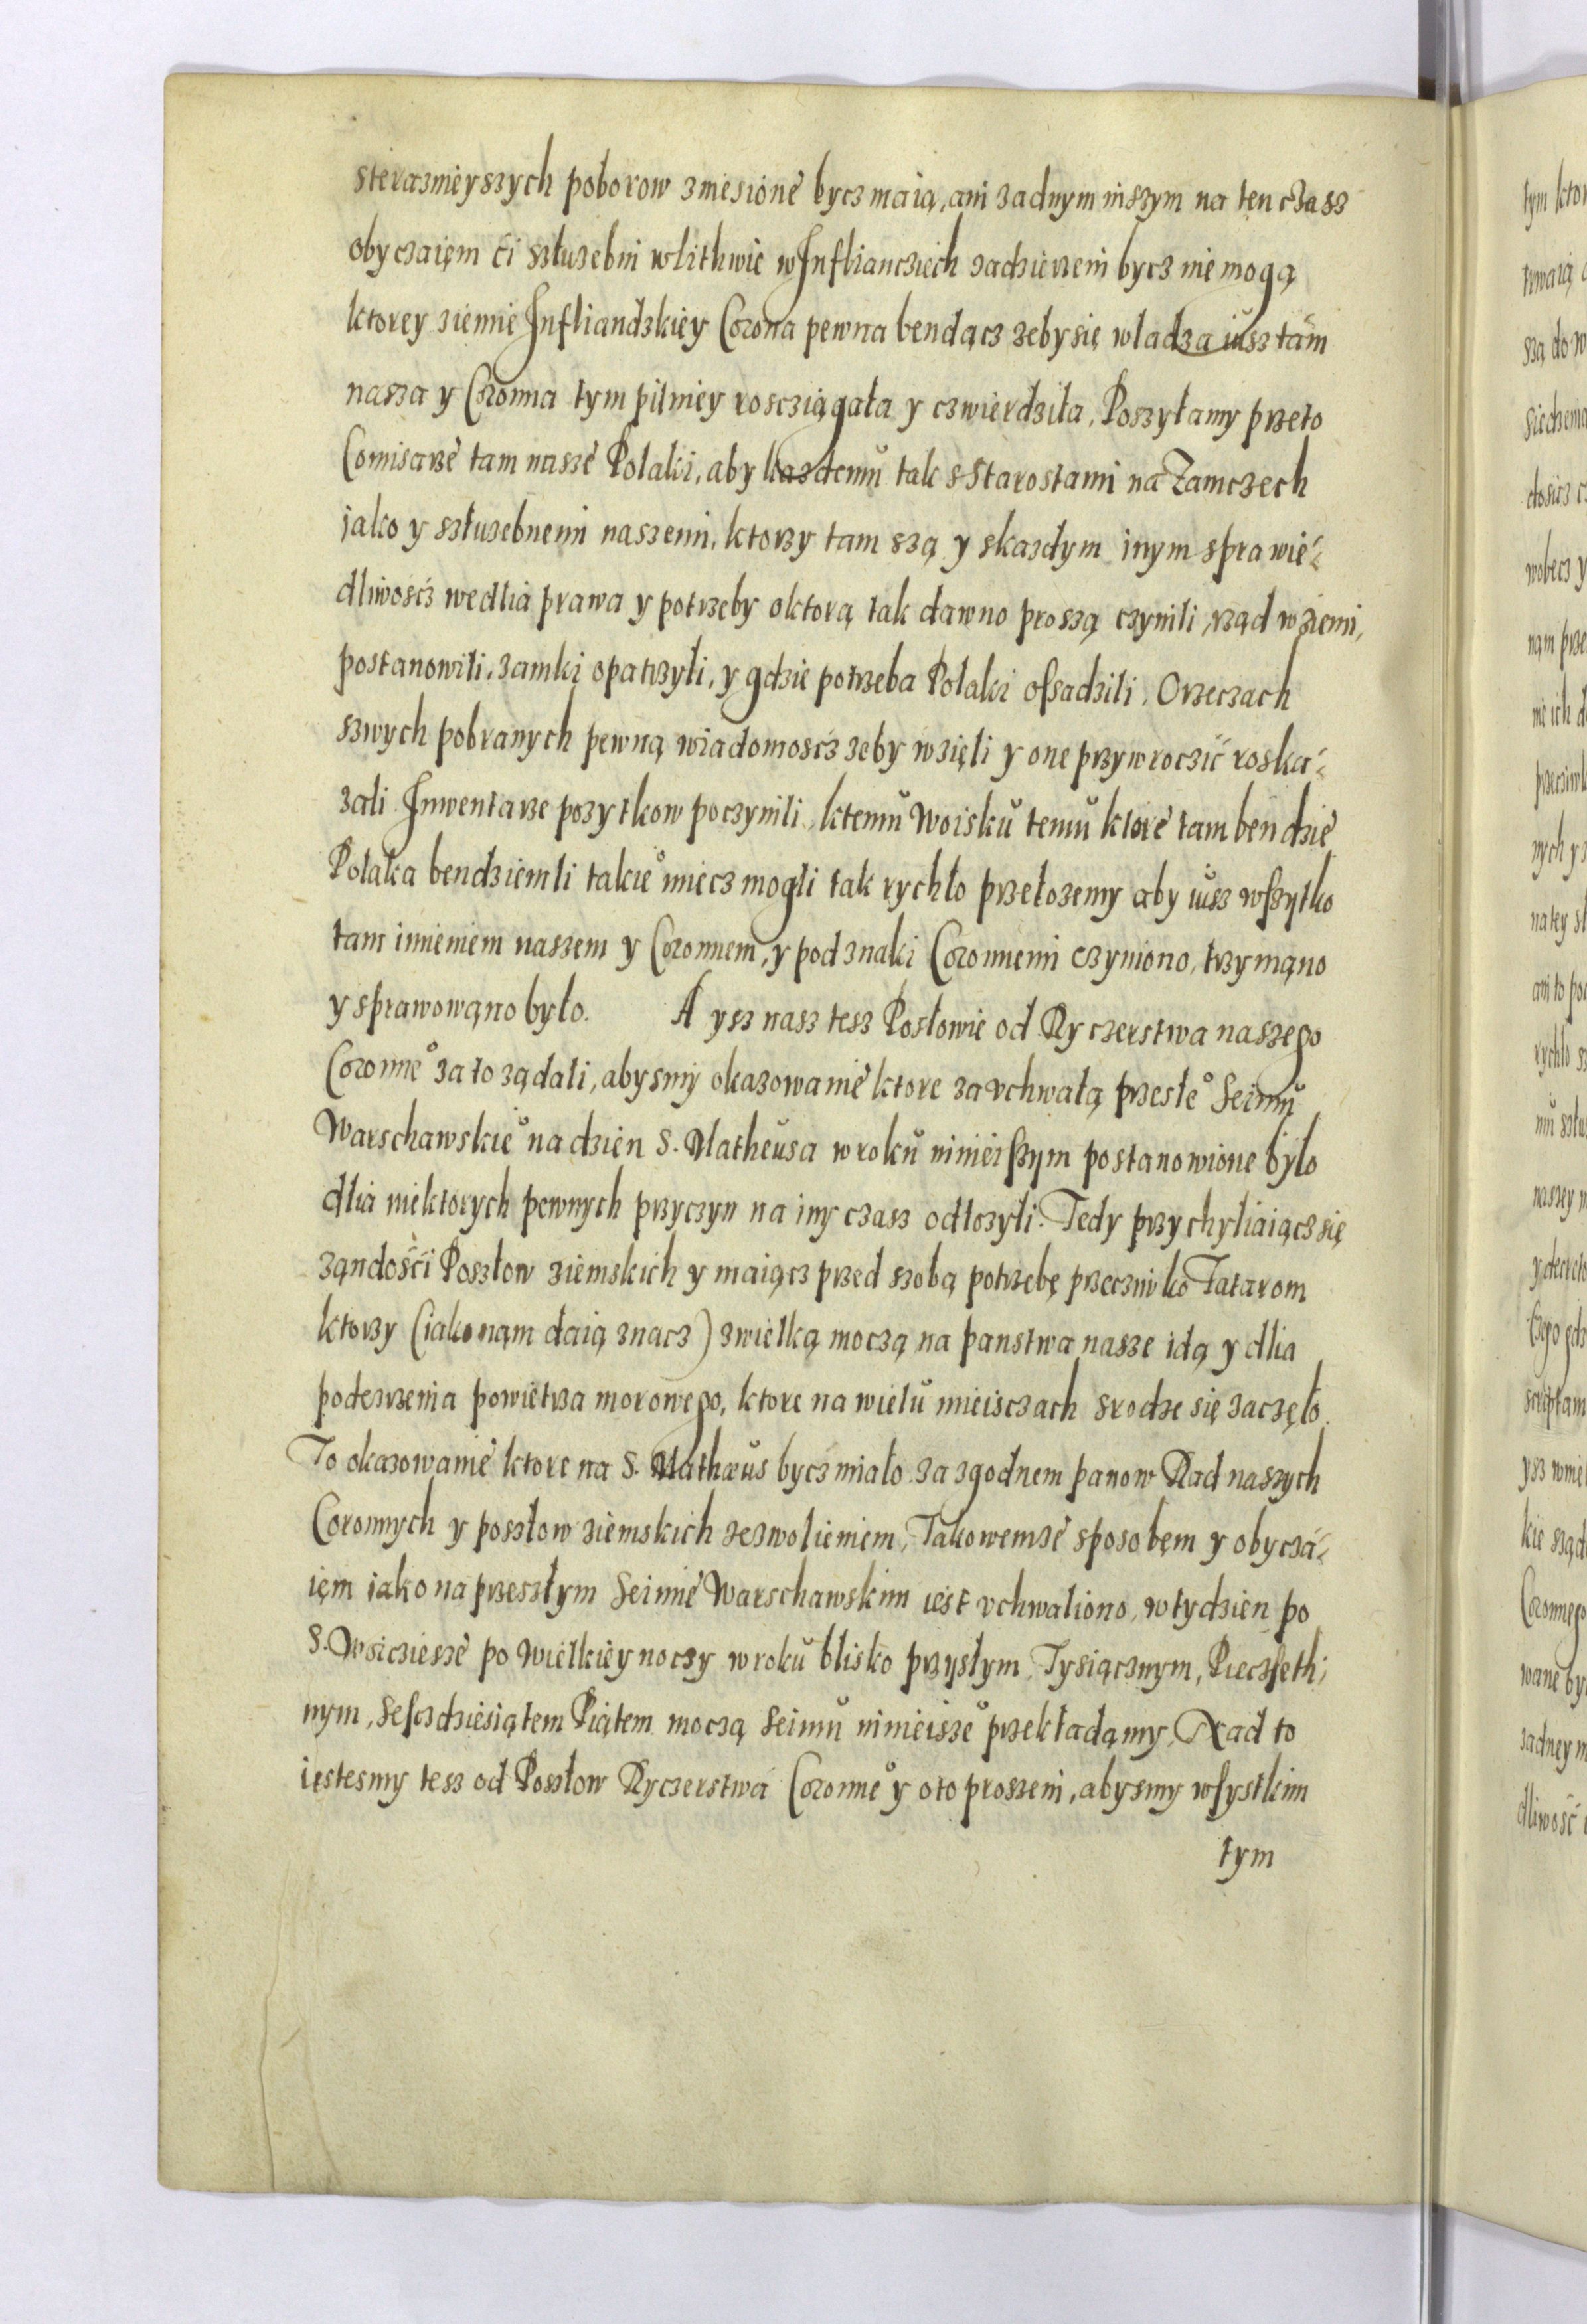 sterazmieyszych poborow zniesioné bycz maią, ani zadnym inszym na ten czasz
obyczaięm ći szłuzebni wlithwie wInflianciech zadzierzeni bycz nie mogą
ktorey ziemie Infliandzkięy Corona pewna bendącz zeby się władza iusz tám
nasza y Coronna tym pilniey rosczięgała y czwierdziła. Poszyłamy przeto
Comisarzé tam naszé Polaki, aby kazdemŭ tak s Starostami na Zamczech
jako y szłuzebnemi naszemi, ktorzy tam szą y skazdym inym sprawie-
dliwosćz wedlia prawa y potrzeby oktorą tak dawno proszą czynili, rząd wziemi,
postanowili, zamki opatrzyłi, y gdzie potrzeba Polaki ossadzili. Orzeczach
szwych pobranych pewną wiadomosćz zeby wzięli y one przywroczić roska-
zali Inwentarze pozytkow poczynili, ktemŭ woiskŭ temŭ ktoré tam bendzie
Polaka bendziemli takie° miecz mogli tak rychło przełozemy aby iŭsz wszytko
tam imieniem naszem y Coronnem, y pod znaki Coronnemi czyniono, trzymąno
y sprawowąno było. A ysz nasz tesz Posłowie od Ryczerstwa naszego
Coronne° za to ządali, abysmy okazowanié ktore za vchwałą przesłe° Seimŭ
Warschawskie° na dzien S. Matheŭsa w rokŭ ninieiszym postanowione było
dlia niektorych pewnych przyczyn na iny czasz odłozyli. Tedy przychyliaiącz się
ząndośći Poszłow ziemskich y maiącz przed szobą potrzebę przeczniwko Tatarom
ktorzy (iako nąm daią znacz) zwielką moczą na panstwa nasze idą y dlia
podezrzenia powietrza morowego, ktore na wielŭ mieisczach srodze się zaczęło.
To okazowanié ktore na S. Mathæŭs bycz miało za zgodnem panow Rad naszych
Coronnych y poszłow ziemskich zezwolieniem, Takowemzé sposobęm y obyczá-
ięm iako na przeszłym Seimié Warschawskim iest vchwaliono, wtydzien po
S. Wsiczieszé po wielkiey noczy w rokŭ blisko przysłym, Tysiącznym, Pieczseth-
nym, Sesczdziesiątem Piątem moczą Seimŭ ninieisze° przekładąmy, Nad to
iestesmy tesz od Poszłow Ryczerstwá Coronne° y oto proszeni, abysmy wsystkim
tym